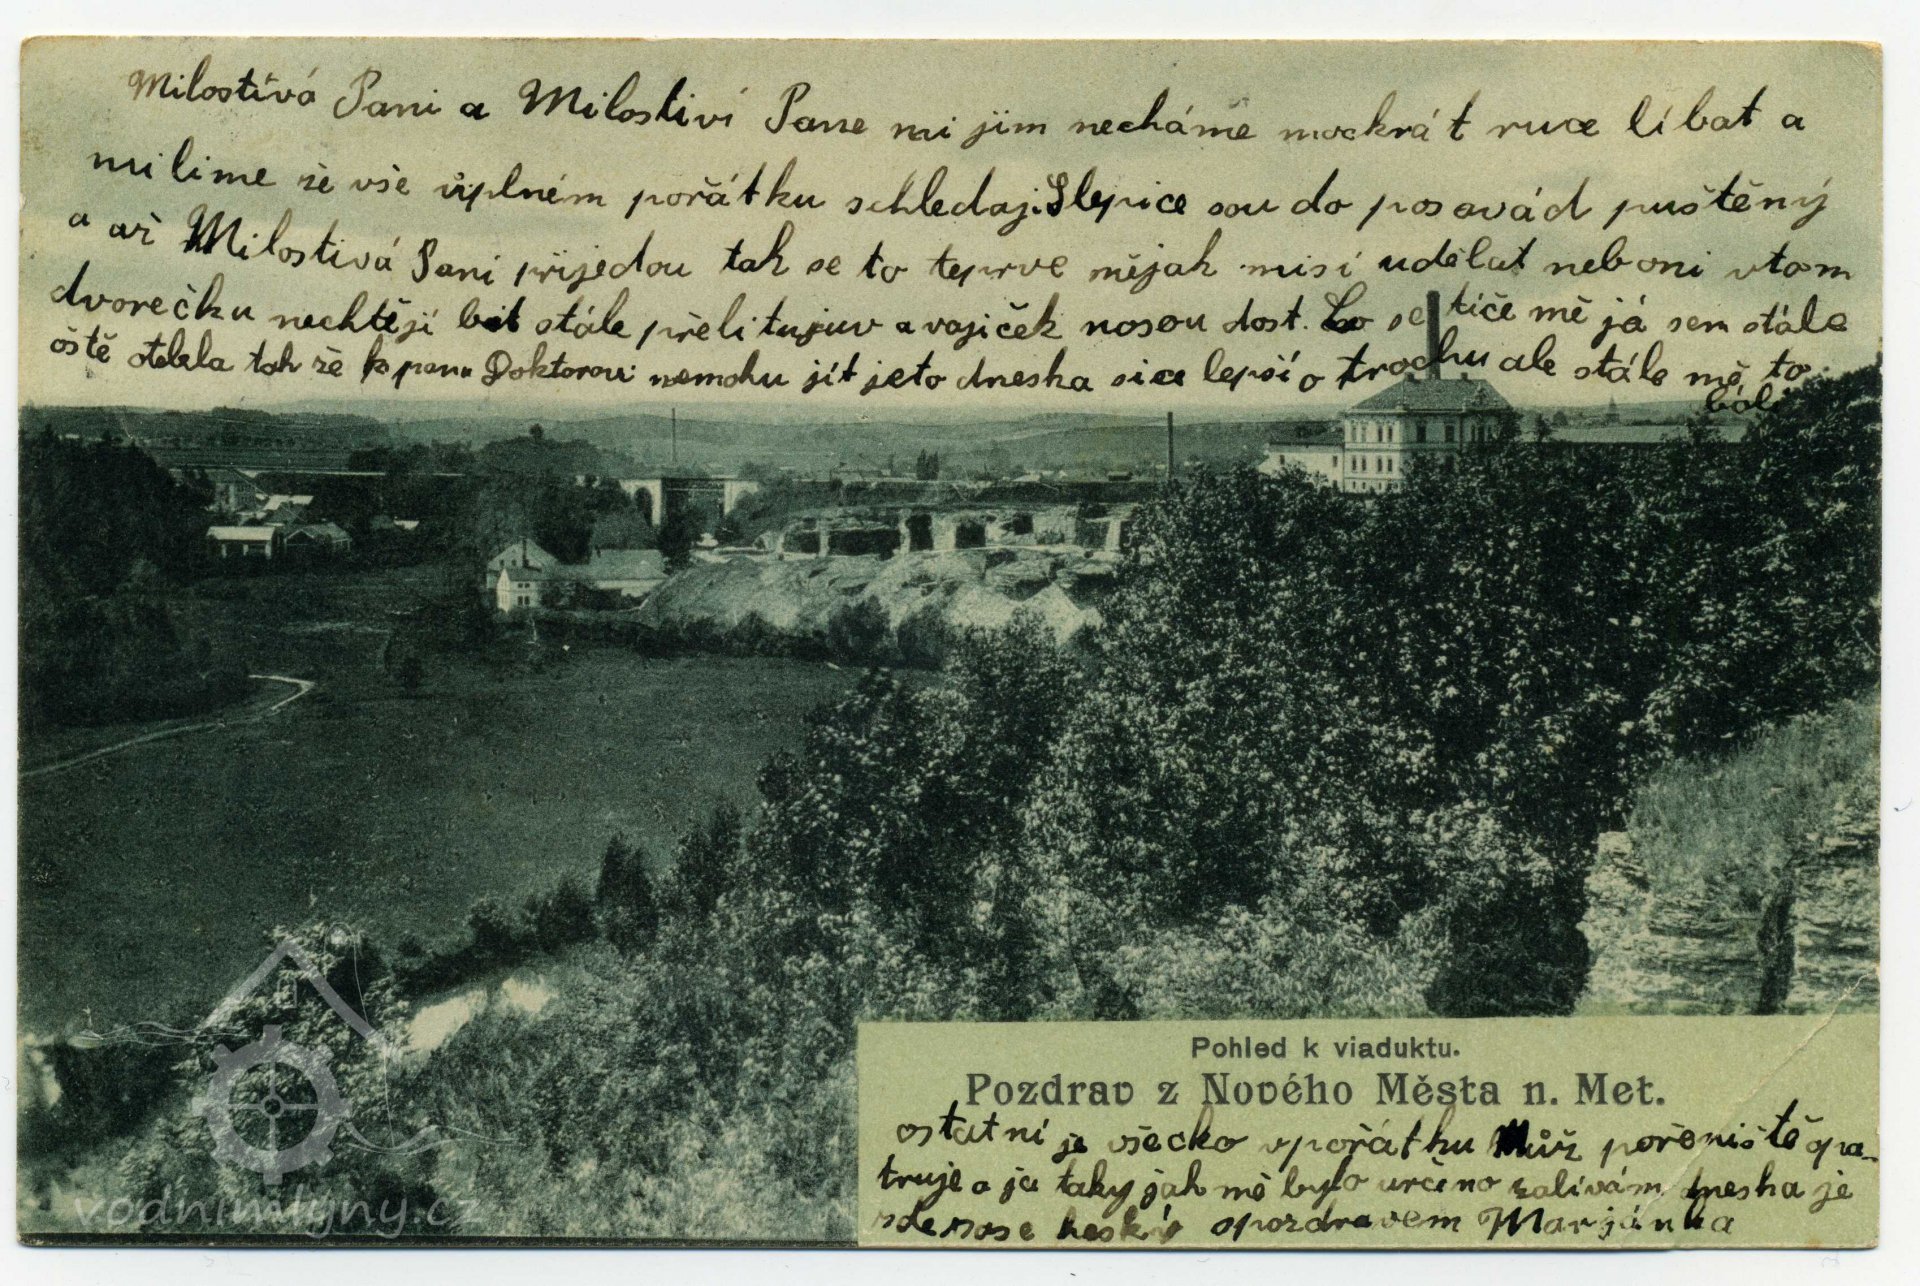 Milostívá Pani a Milostiví Pane mi jim necháme mockrát ruce líbat a
mi líme že vše vúplném pořátku schledaji Slepice sou do posavád puštěný
a až Milostivá Pani přijedou tak se to teprve nějak misí udělat neboni vtom
dvorečku nechtějí bit stále přelitujuv a vajiček nosou dost. Co se tiče mě já sem stále
oště otekla tak že k panu Doktorovi nemohu jít jeto dneska sice lepší o trochu ale stále mě to
bolí
Pohled k viaduktu.
Pozdrav z Nového Města n. Met.
ostatní je všecko vpořátku Můž pořeniště opa-
truje a ja taky jak mě bylo určeno zalívám dneska je
heský spozdravem Marjánka
vodnimlyny.cz